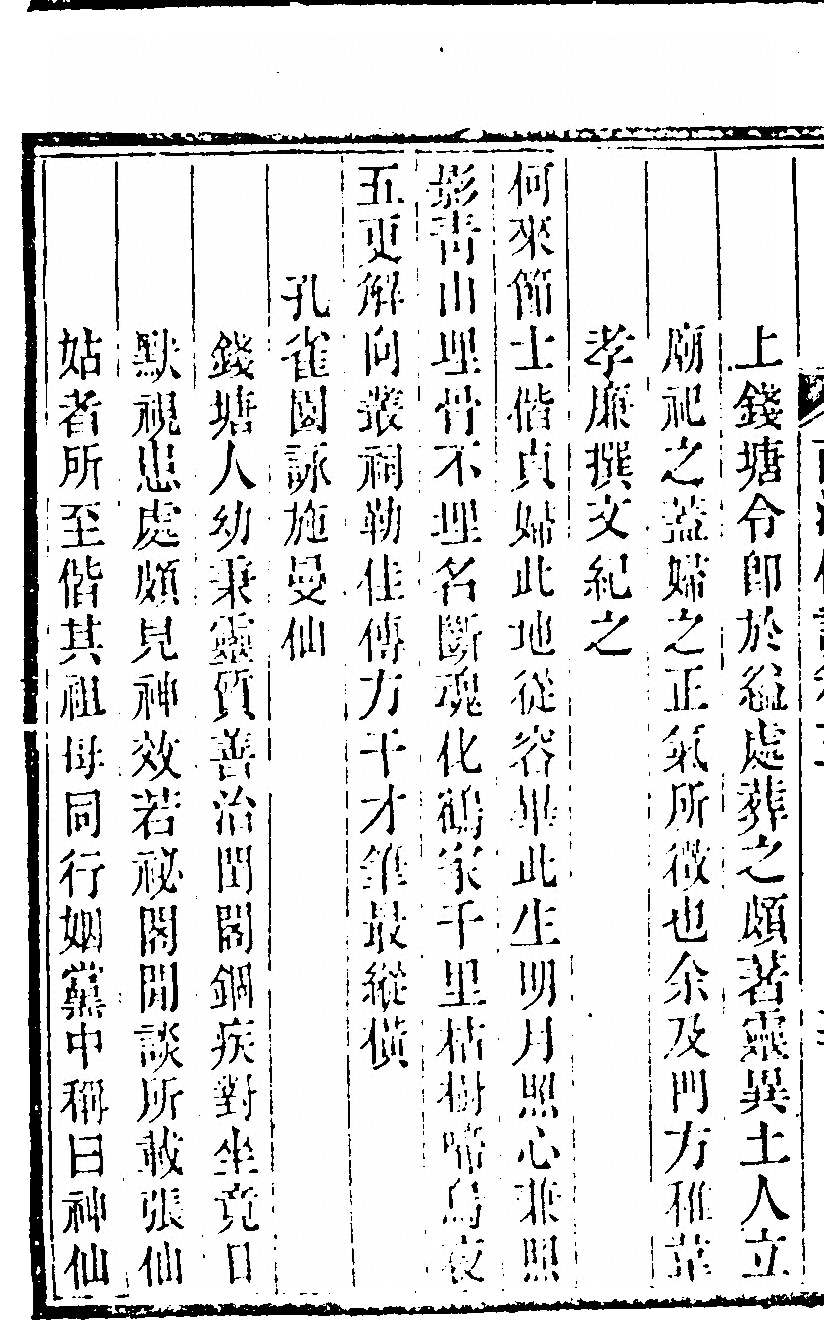 上錢塘令卽於縊處葬之頗著靈異土人立
廟祀之蓋婦之正氣所徵也余及門方稚韋
孝廉撰文紀之
何來節士偕貞婦此地從容畢此生明月照心兼照
影青山埋骨不埋名斷魂化鶴家千里枯樹啼烏夜
五更解向叢祠勒佳傳方干才筆最縱橫
孔雀園詠施曼仙
錢塘人幼秉靈質善治閨閣錮疾對坐竟日
默視患處頗見神效若祕閣閒談所載張仙
姑者所至偕其祖母同行姻黨中稱曰神仙